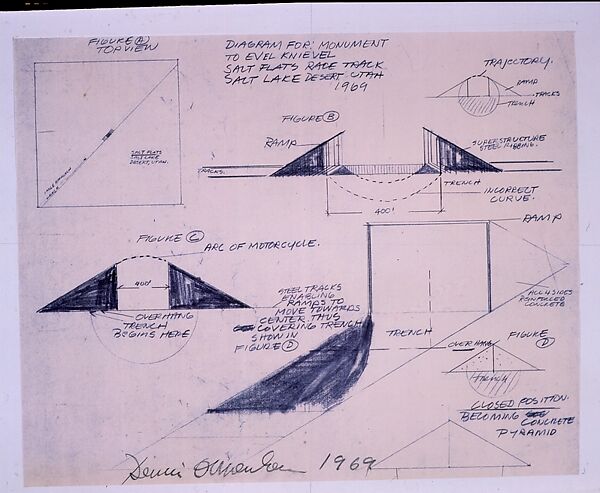 FIGURE (A)
TOP VIEW
DIAGRAM FOR: MONUMENT
TO EVEL KNIEVEL
SALT FLATS RACE TRACK
SALT LAKE DESERT, UTAH
1969
TRAJECTORY.
RAMP
TRACKS
TRENCH
SALT FLATS
SALT LAKE
DESERT, UTAH.
FIGURE (B)
RAMP
SUPERSTRUCTURE
STEEL RIBBING.
TRACKS.
TRENCH
INCORRECT
CURVE.
400'
RAMP
FIGURE (C)
ARC OF MOTORCYCLE.
400'
OVERHANG
TRENCH
BEGINS HERE
STEEL TRACKS
ENABLING
RAMPS TO
MOVE TOWARDS
CENTER THUS
COVERING TRENCH
SHOW IN
FIGURE (D)
ALL 4 SIDES
REINFORCED
CONCRETE
TRENCH
OVERHANG
FIGURE
(D)
TRENCH
CLOSED POSITION.
BECOMING
CONCRETE
PYRAMID
Dennis Oppenheim 1969